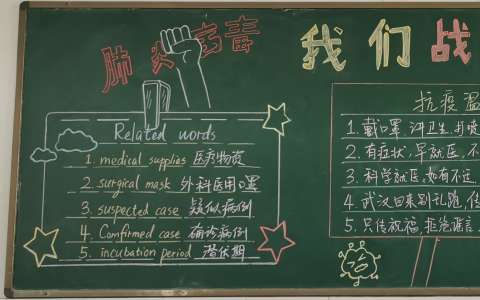 肺炎病毒
我们战
Related words
1. medical supplies 医疗物资
2. surgical mask 外科医用口罩
3. suspected case 疑似病例
4. Comfirmed case 确诊病例
5. incubation period 潜伏期
抗疫
1. 戴口罩 讲卫生
2. 有症状,早就医,不
3. 科学就医,如有不适
4. 武汉回来别乱跑
5. 只传祝福,拒绝谣言